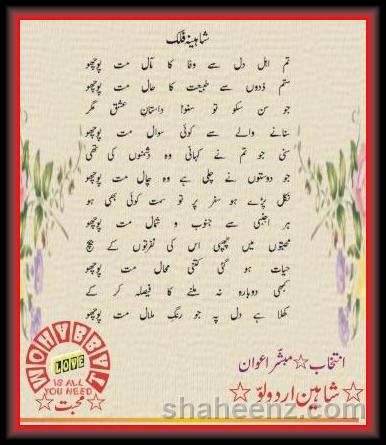 شاہینہ فلک
تم اہل دل سے وفا کا مآل مت پوچھو
ستم زدوں سے طبیعت کا حال مت پوچھو
جو سن سکو تو سنو! داستانِ عشق مگر
سنانے والے سے کوئی سوال مت پوچھو
سنی جو تم نے کہانی وہ دشمنوں کی تھی
جو دوستوں نے چلی ہے وہ چال مت پوچھو
نکل پڑے ہو سفر پر تو سمت کوئی بھی ہو
ہر اجنبی سے جنوب و شمال مت پوچھو
محبتوں میں چھپی اس کی نفرتوں کے بیچ
حیات ہو گئی کتنی محال مت پوچھو
کبھی دوبارہ نہ ملنے کا فیصلہ کر کے
کھلا ہے دل پہ جو رنگِ ملال مت پوچھو
انتخاب ☆ مبشر اعوان
☆ شاہین اردو لوّ ☆
LOVE
IS ALL
YOU NEED
☆ محبت ☆
shaheenz.com